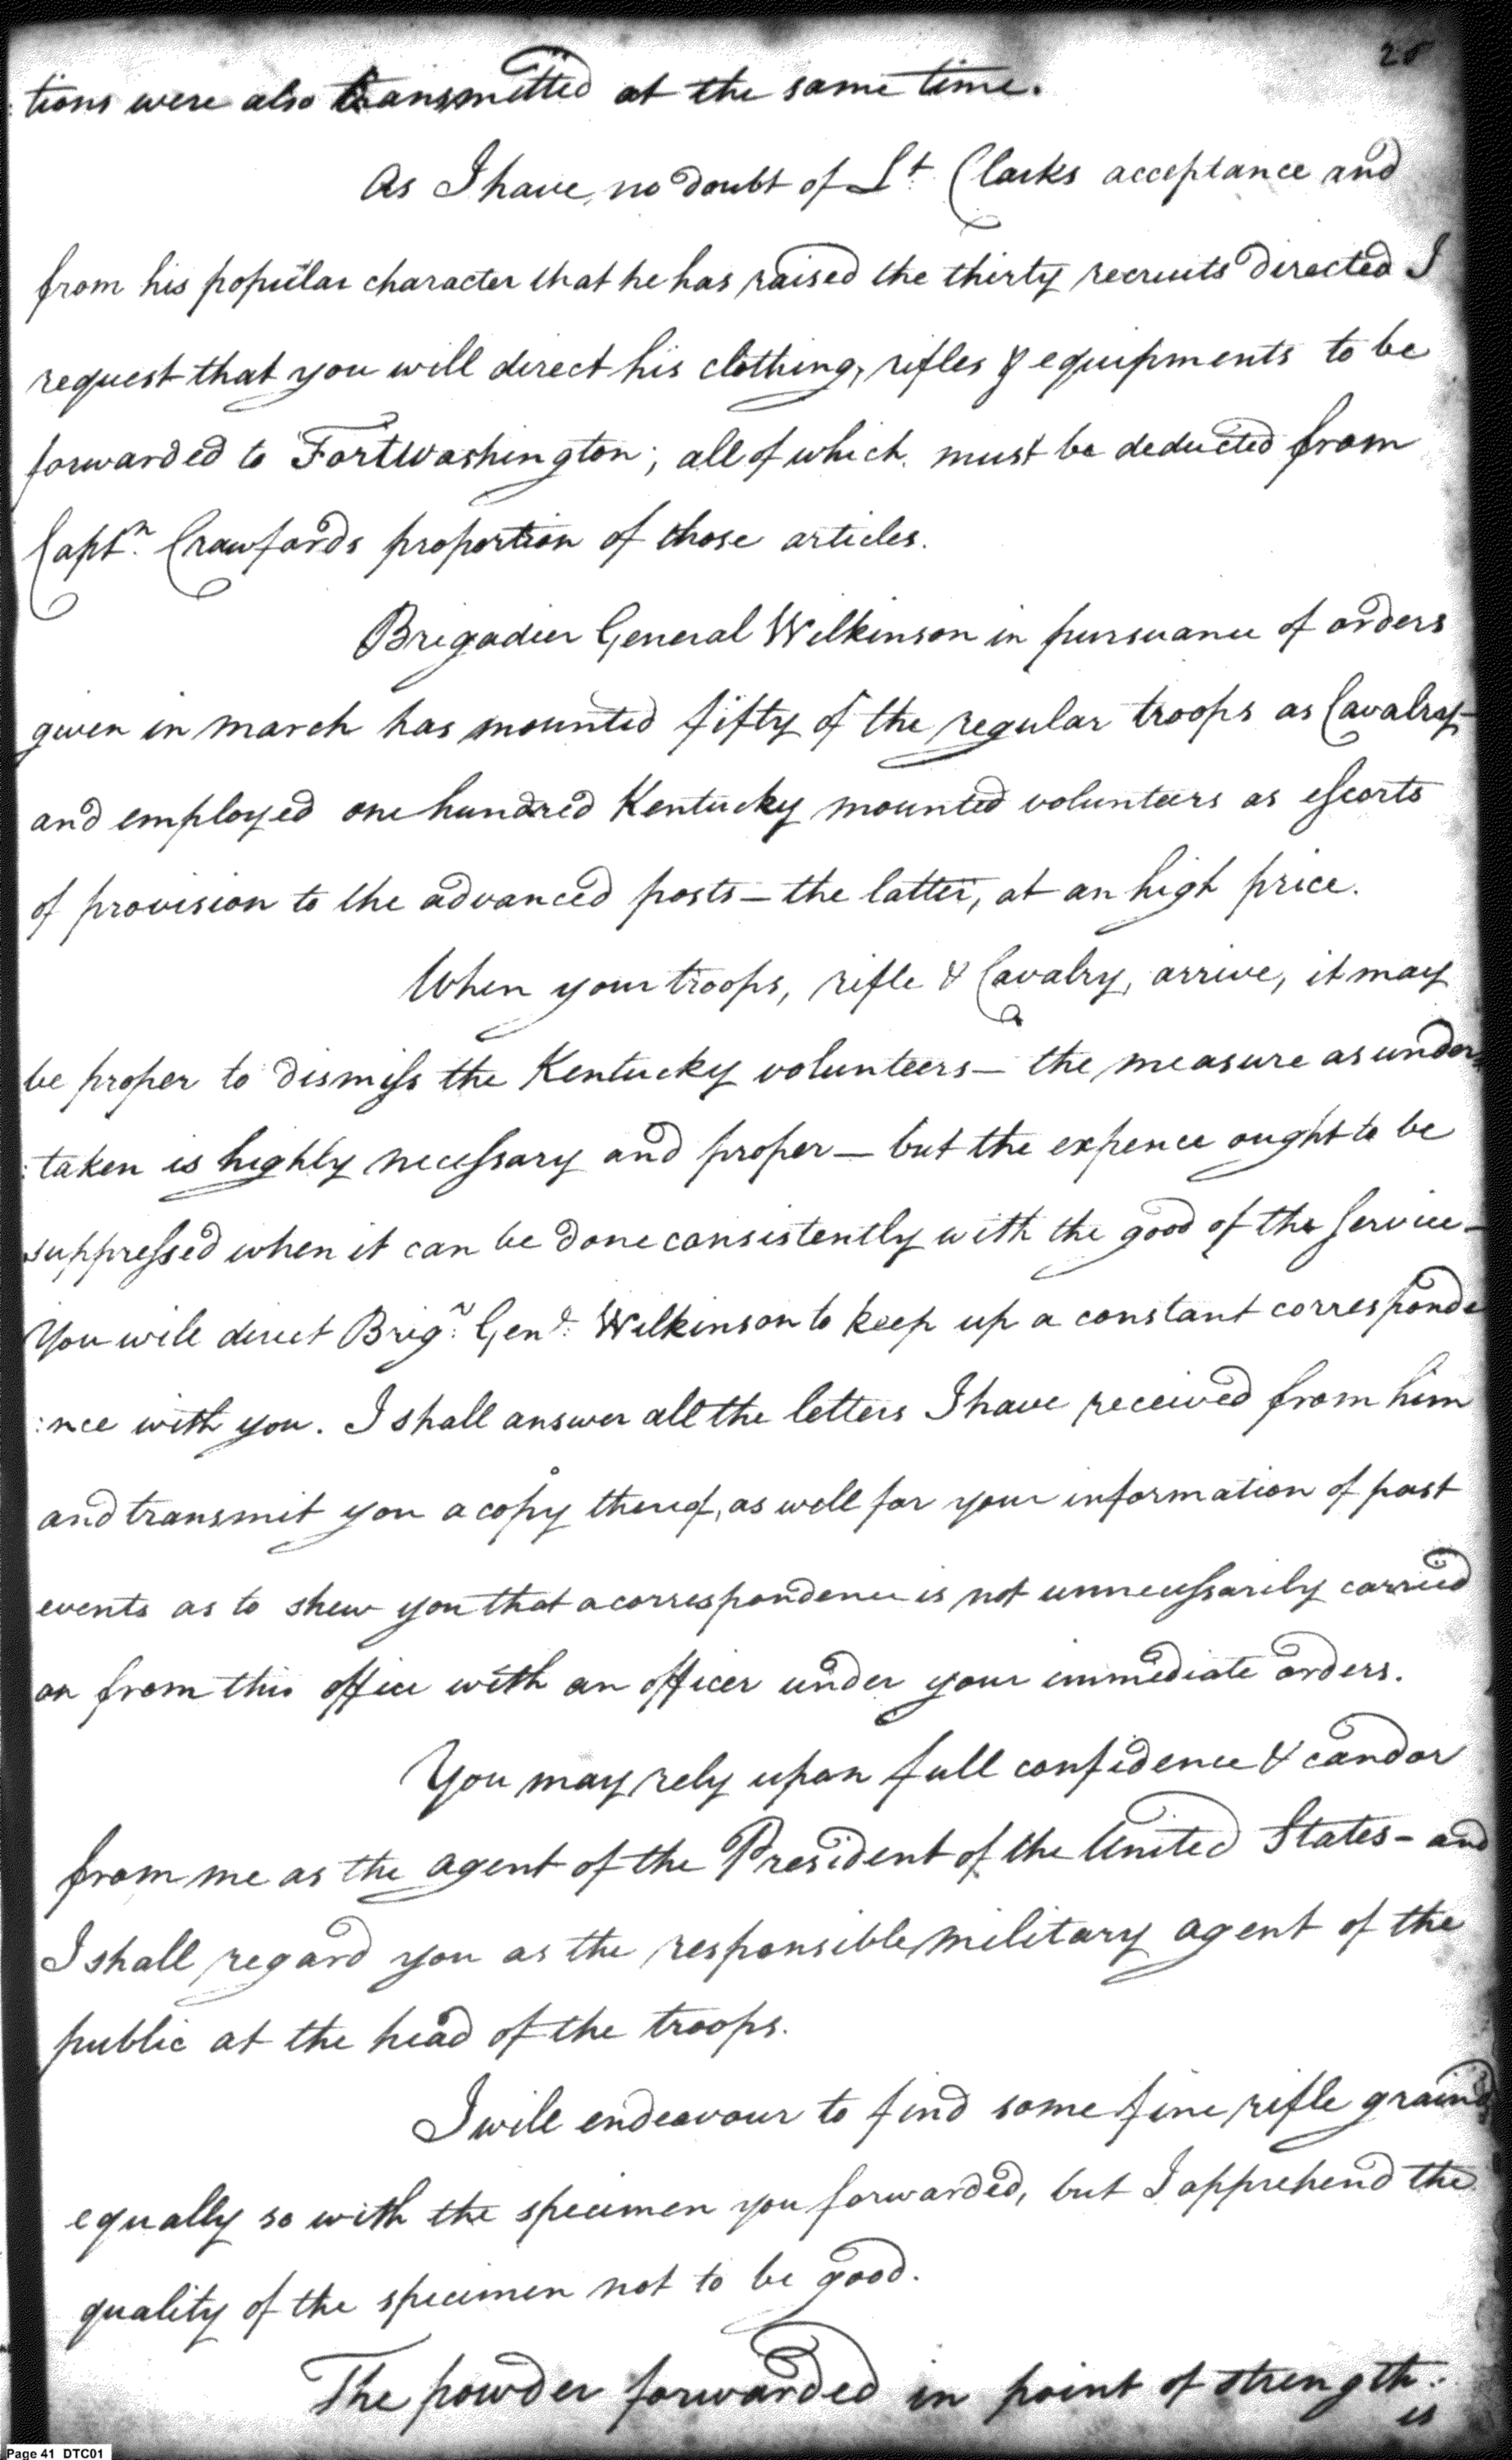 28
:tions were also transmitted at the same time.
As I have, no doubt of Lt. Clarks acceptance and
from his popular character that he has raised the thirty recruits directed I
request that you will direct his clothing, rifles & equipments to be
forwarded to Fort Washington; all of which must be deducted from
Captn. Crawfords proportion of those articles.
Brigadier General Wilkinson in pursuance of orders
given in march has mounted fifty of the regular troops as Cavalry
and employed one hundred Kentucky mounted volunteers as escorts
of provision to the advanced posts — the latter, at an high price.
When your troops, rifle & Cavalry, arrive, it may
be proper to dismiss the Kentucky volunteers — the measure as under
:taken is highly necessary and proper — but the expence ought to be
suppressed when it can be done consistently with the good of the service —
You will direct Brigr. Genl. Wilkinson to keep up a constant corresponde
:nce with you. I shall answer all the letters I have received from him
and transmit you a copy thereof, as well for your information of past
events as to shew you that a correspondence is not unnecessarily carried
on from this office with an officer under your immediate orders.
You may rely upon full confidence & candor
from me as the agent of the President of the United States — and
I shall regard you as the responsible military agent of the
public at the head of the troops.
I will endeavour to find some fine rifle grained
equally so with the specimen you forwarded, but I apprehend the
quality of the specimen not to be good.
The powder forwarded in point of strength:
is
Page 41 DTC01